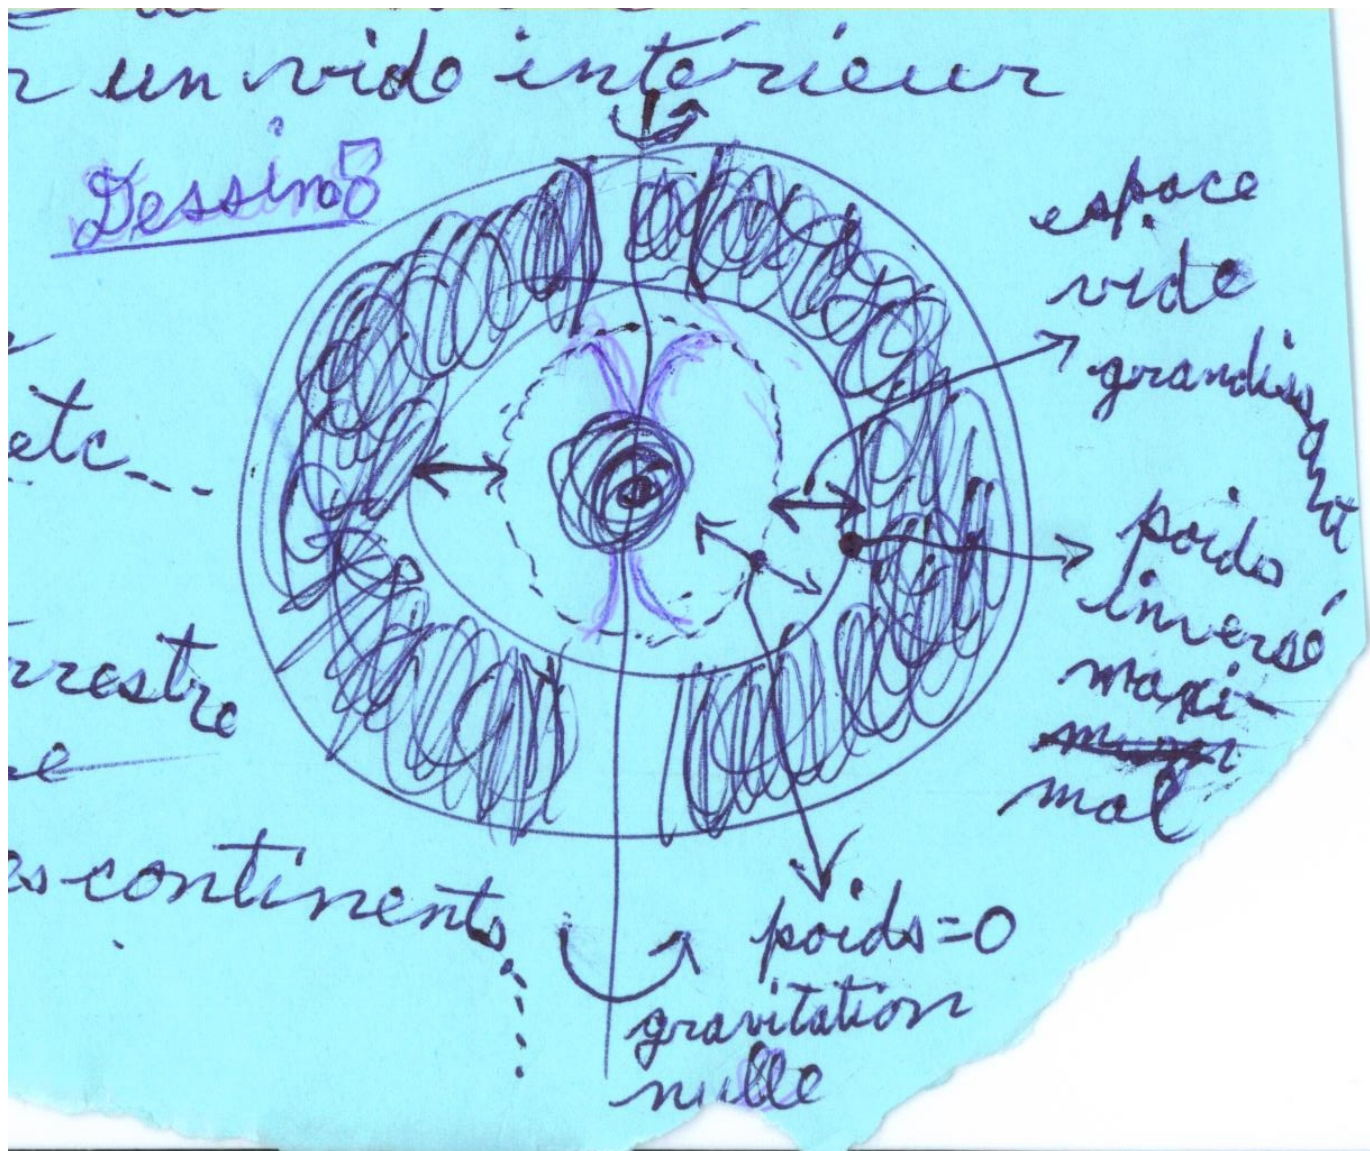 un vide intérieur
Dessin:
espace
vide
grandissant
etc...
poids
inversé
maxi-
mal
continents
poids=0
gravitation
nulle